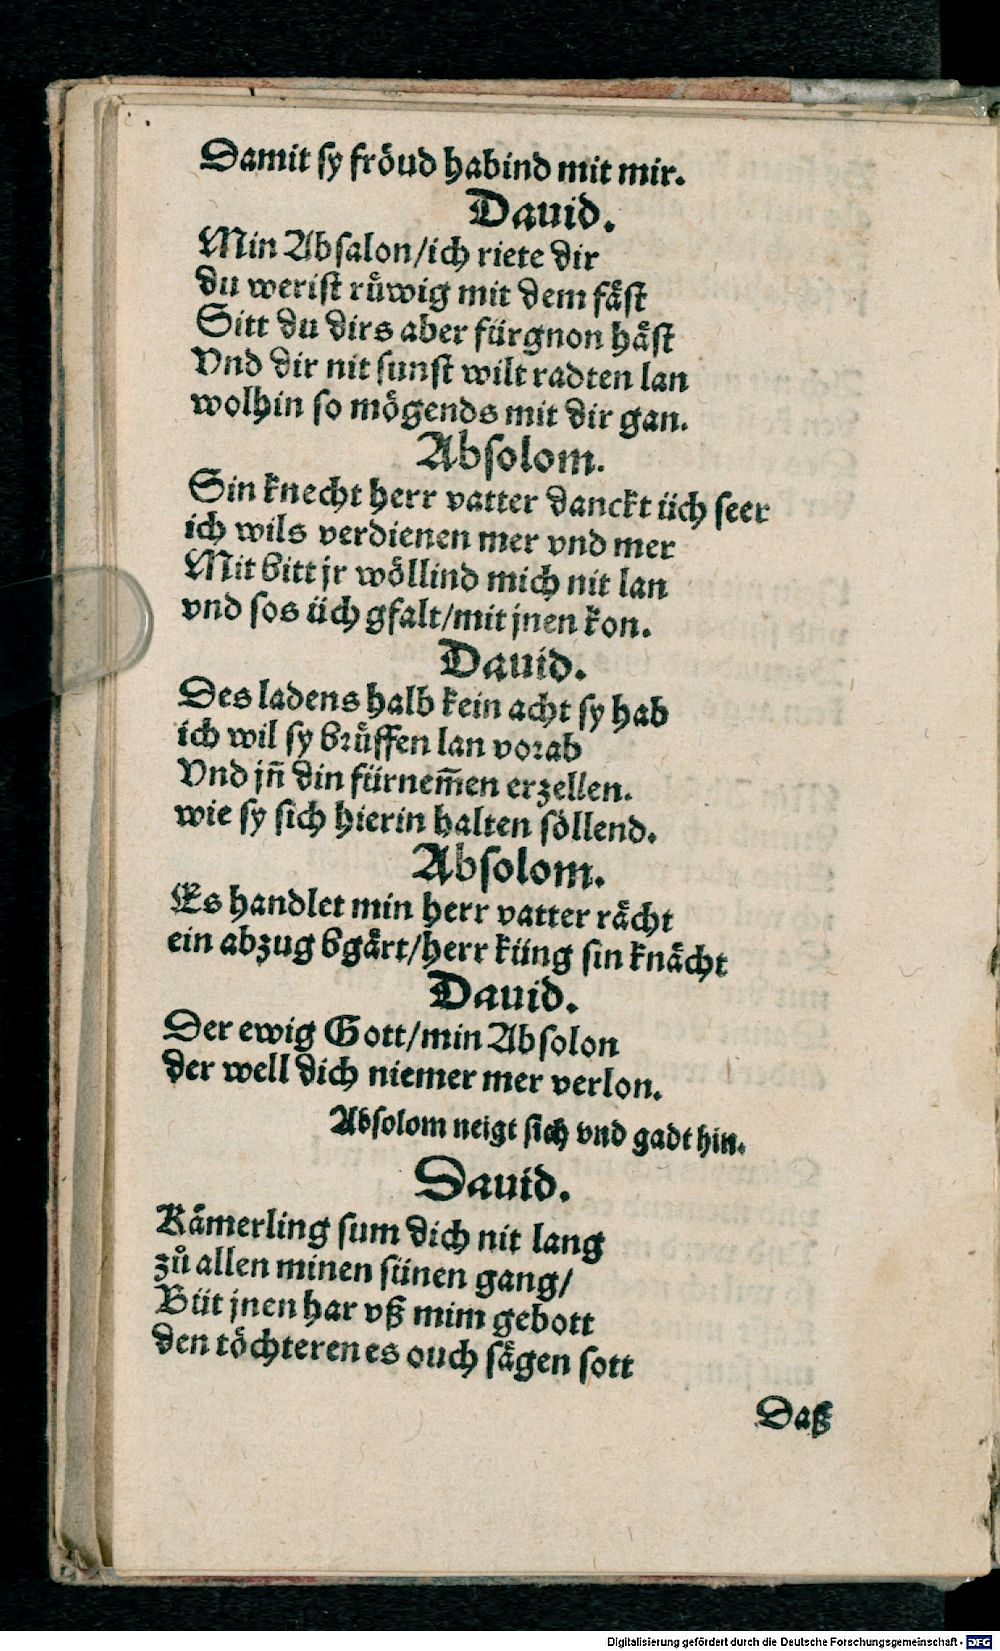 Damit sy fröud habind mit mir.
Dauid.
Min Absalon/ich riete dir
du werist růwig mit dem fäst
Sitt du dirs aber fürgnon häst
Vnd dir nit sunst wilt radten lan
wolhin so mögends mit dir gan.
Absolom.
Sin knecht herr vatter danckt üch seer
ich wils verdienen mer vnd mer
Mit bitt jr wöllind mich nit lan
vnd sos üch gfalt/mit jnen kon.
Dauid.
Des ladens halb kein acht sy hab
ich wil sy brůffen lan vorab
Vnd jn̄ din fürnem̄en erzellen.
wie sy sich hierin halten söllend.
Absolom.
Es handlet min herr vatter rächt
ein abzug bgärt/herr küng sin knächt
Dauid.
Der ewig Gott/min Absolon
der well dich niemer mer verlon.
Absolom neigt sich vnd gadt hin.
Dauid.
Kämerling sum dich nit lang
zů allen minen sünen gang/
Büt jnen har vß mim gebott
den töchteren es ouch sägen sott
Daß
Digitalisierung gefördert durch die Deutsche Forschungsgemeinschaft - DFG